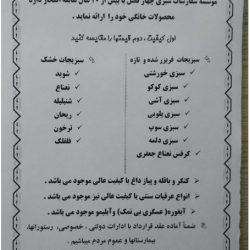 موسسه سفارشات سبزی چهار فصل با بیش از ۲۰ سال سابقه افتخار دارد
محصولات خانگی خود را ارائه نماید .
اول کیفیت ، دوم قیمتها را مقایسه کنید
سبزیجات فریزر شده و تازه
سبزی خورشتی
سبزی کوکو
سبزی آشی
سبزی پلویی
سبزی سوپ
سبزی دلمه
کرفس نعناع جعفری
سبزیجات خشک
شوید
نعناع
شنبلیله
ریحان
ترخون
فلفلک
کنگر و باقله و پیاز داغ با کیفیت عالی موجود می باشد .
انواع عرقیات سنتی با کیفیت عالی نیز موجود می باشد .
آبغوره (عسگری بی نمک) و آبلیمو موجود می باشد .
ضمناً آماده عقد قرارداد با ادارات دولتی ، خصوصی، رستورانها،
بیمارستانها و عموم مردم میباشیم .